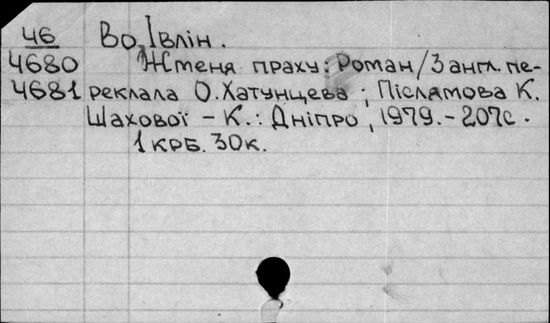 46 Во, Івлін.
4680 Жменя праху: Роман / З англ. пе-
4681 реклала О. Хатунцева; Післямова К.
Шахової – К.: Дніпро, 1979. – 207с.
1 крб. 30к.